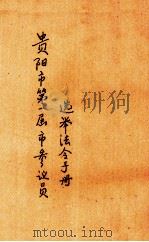 贵阳市第一届市参议员
选举法令手册